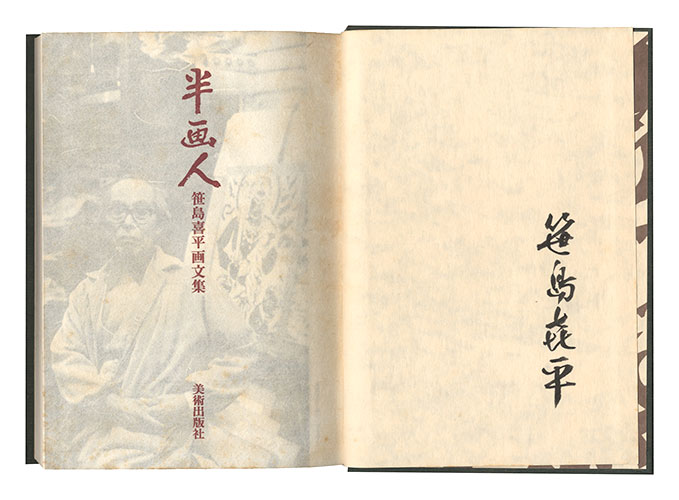 半画人
笹島喜平画文集
美術出版社
笹島㐂平